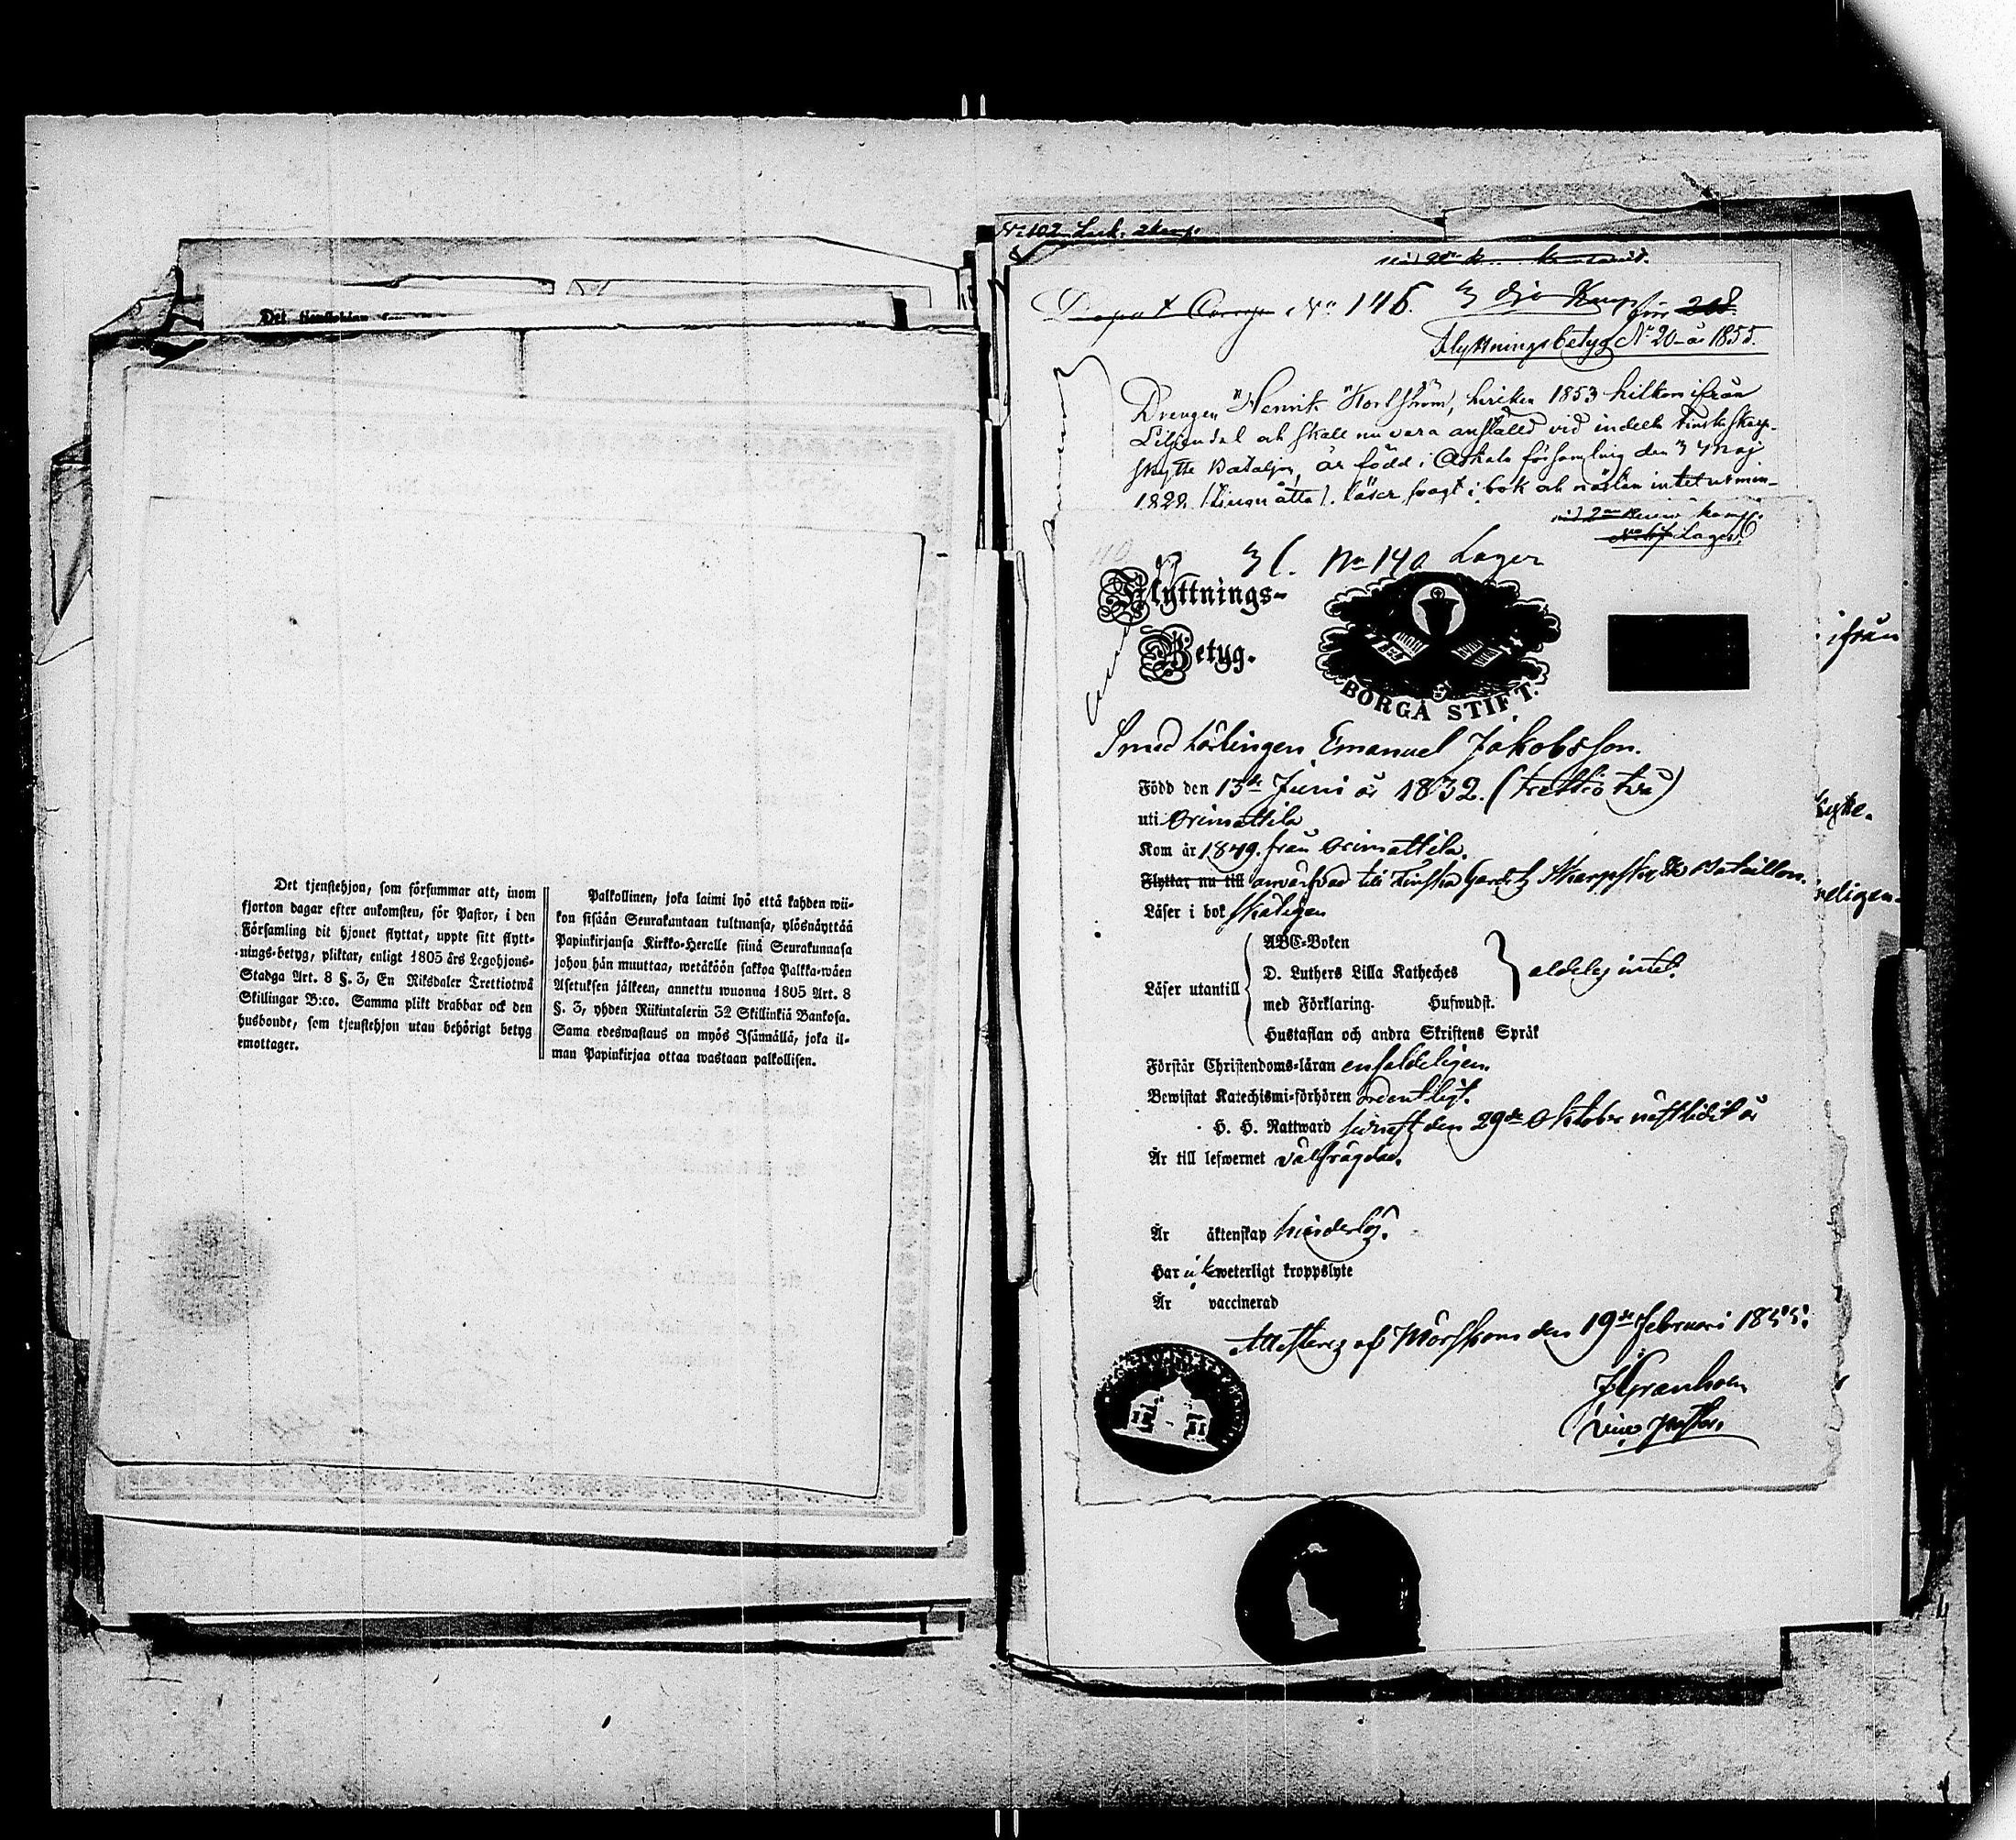 Det tjenstehjon, som försummar att, inom
fjorton dagar efter ankomsten, för Pastor, i den
Församling dit hjonet flyttat, uppte sitt flytt-
nings-betyg, pliktar, enligt 1805 års Legohjons-
Stadga Art. 8 §. 3, En Riksdaler Trettiotwå
Skillingar B:co. Samma plikt drabbar ock den
husbonde, som tjenstehjon utan behörigt betyg
emottager.
Palkollinen, joka laimi lyö että kahden wii-
kon sisään Seurakantaan tultnansa, ylösnäyttää
Papinkirjansa Kirkko-Heralle siinä Seurakunnasa
johon hän muuttaa, wetäköön sakkoa Palkka-wäen
Asetuksen jälkeen, annettu wuonna 1805 Art. 8
§. 3, yhden Riikintalerin 32 Skillinkiä Bankosa.
Sama edeswastaus on myös Isännällä, joka il-
man Papinkirjaa ottaa wastaan palkollisen.
No 102
Depot Comp No 146. 3 dje Komp
Flyttningsbetyg No 20 år 1855.
Drengen Henrik Karlström, 1853 hitkom ifrån
Liljendal och skall nu vara anställd vid indelta Finska Skarp-
skytte Bataljon, är född i Askola församling den 3 Maj
1828 (tjuguåtta). Läser svagt i bok och nästan intet utmin-
Lager
3 C. No 140 Lager
Flyttnings-
Betyg.
BORGÅ STIFT.
ifrån
Smed Lärlingen Emanuel Jakobsson.
Född den 13de Juni år 1832. (trettio två)
uti Orimattila
Kom år 1849. från Orimattila.
Flyttar nu till anvärfvad till Finska Gardets Skarpskytte Bataillon.
Läser i bok skäligen
Läser utantill
ABC-Boken
D. Luthers Lilla Katheches
med Förklaring. Hufwudst.
aldeles intet.
Hustaflan och andra Skriftens Språk
Förstår Christendoms-läran enfaldeligen.
Bewistat Katechismi-förhören ordentligt.
H. H. Nattward senast den 29de Oktober nästlidit år
Är till lefwernet välfrägdad.
Är äktenskap hinderlös.
Har icke weterligt kroppslyte
Är vaccinerad
Attesteras af Mörskom den 19de Februari 1855.
J Granholm
Vice pastor.